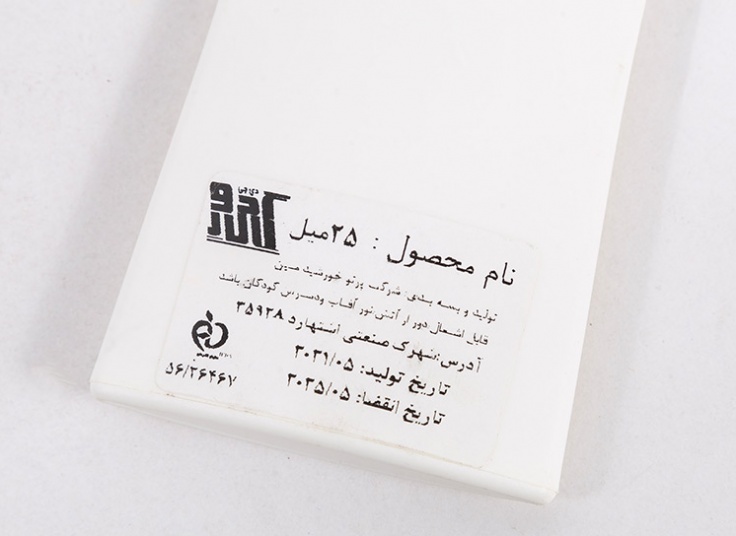 دی جی
نام محصول : ۲۵ میل
تولید و بسته بندی: شرکت پرتو خورشید مبین
قابل اشتعال دور از آتش نور آفتاب ودسترس کودکان باشد
آدرس:شهرک صنعتی اشتهارد ۳۵۹۲۸
تاریخ تولید: ۲۰۲۱/۰۵
تاریخ انقضا: ۲۰۲۵/۰۵
۵۶/۲۶۴۶۷